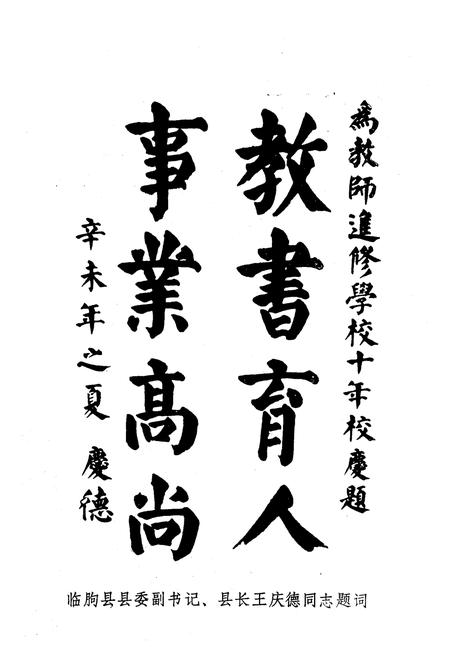 為教師進修學校十年校慶題
教書育人
事業高尚
辛未年之夏 慶德
临朐县县委副书记、县长王庆德同志题词